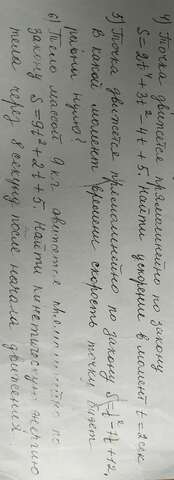 4) Точка движется прямолинейно по закону
S=2t⁴+3t²-4t+5. Найти ускорение в момент t=2сек
5) Точка движется прямолинейно по закону S=t²-7t+12,
в какой момент времени скорость точки будет
равна нулю?
6) Тело массой 9 кг движется прямолинейно по
закону S=9t²+2t+5. Найти кинетическую энергию
тела через 8 секунд после начала движения.